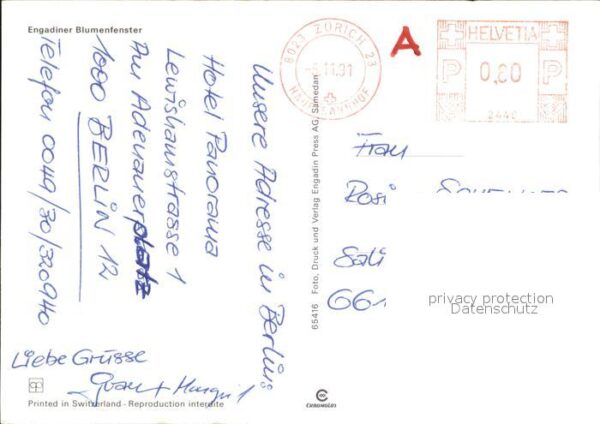 Engadiner Blumenfenster
Unsere Adresse in Berlin:
Hotel Panorama
Lewishamstrasse 1
Am Adenauerplatz
1000 BERLIN 12
Telefon 0049/30/320940
Liebe Grüsse
Printed in Switzerland - Reproduction interdite
65416 Foto, Druck und Verlag Engadin Press AG, Samedan
8023 ZÜRICH 23
11.91
HAUPTBAHNHOF
A
HELVETIA
P 0,80 P
Frau
Rosi
661
privacy protection
Datenschutz